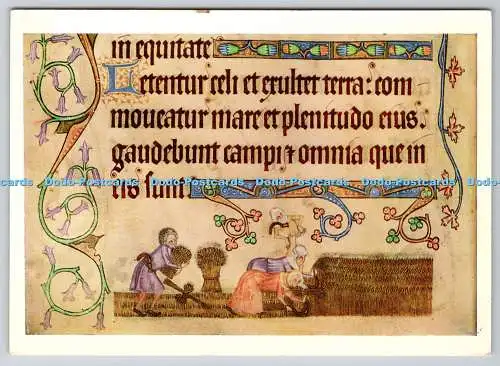 in equitate
Letentur celi et exultet terra: com
moueatur mare et plenitudo eius.
gaudebunt campi ⁊ omnia que in
eis sunt
Dodo-Postcards Dodo-Postcards Dodo-Postcards Dodo-Postcards